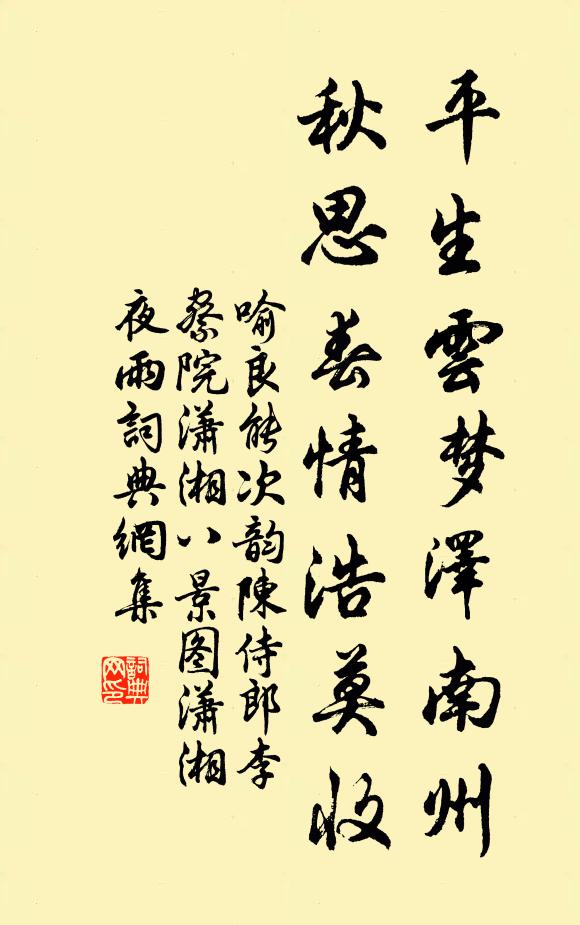 平生雲梦澤南州
秋思春情浩莫收
喻良能次韵陳侍郎李
察院潇湘八景图潇湘
夜雨詞典網集
詞典
网印